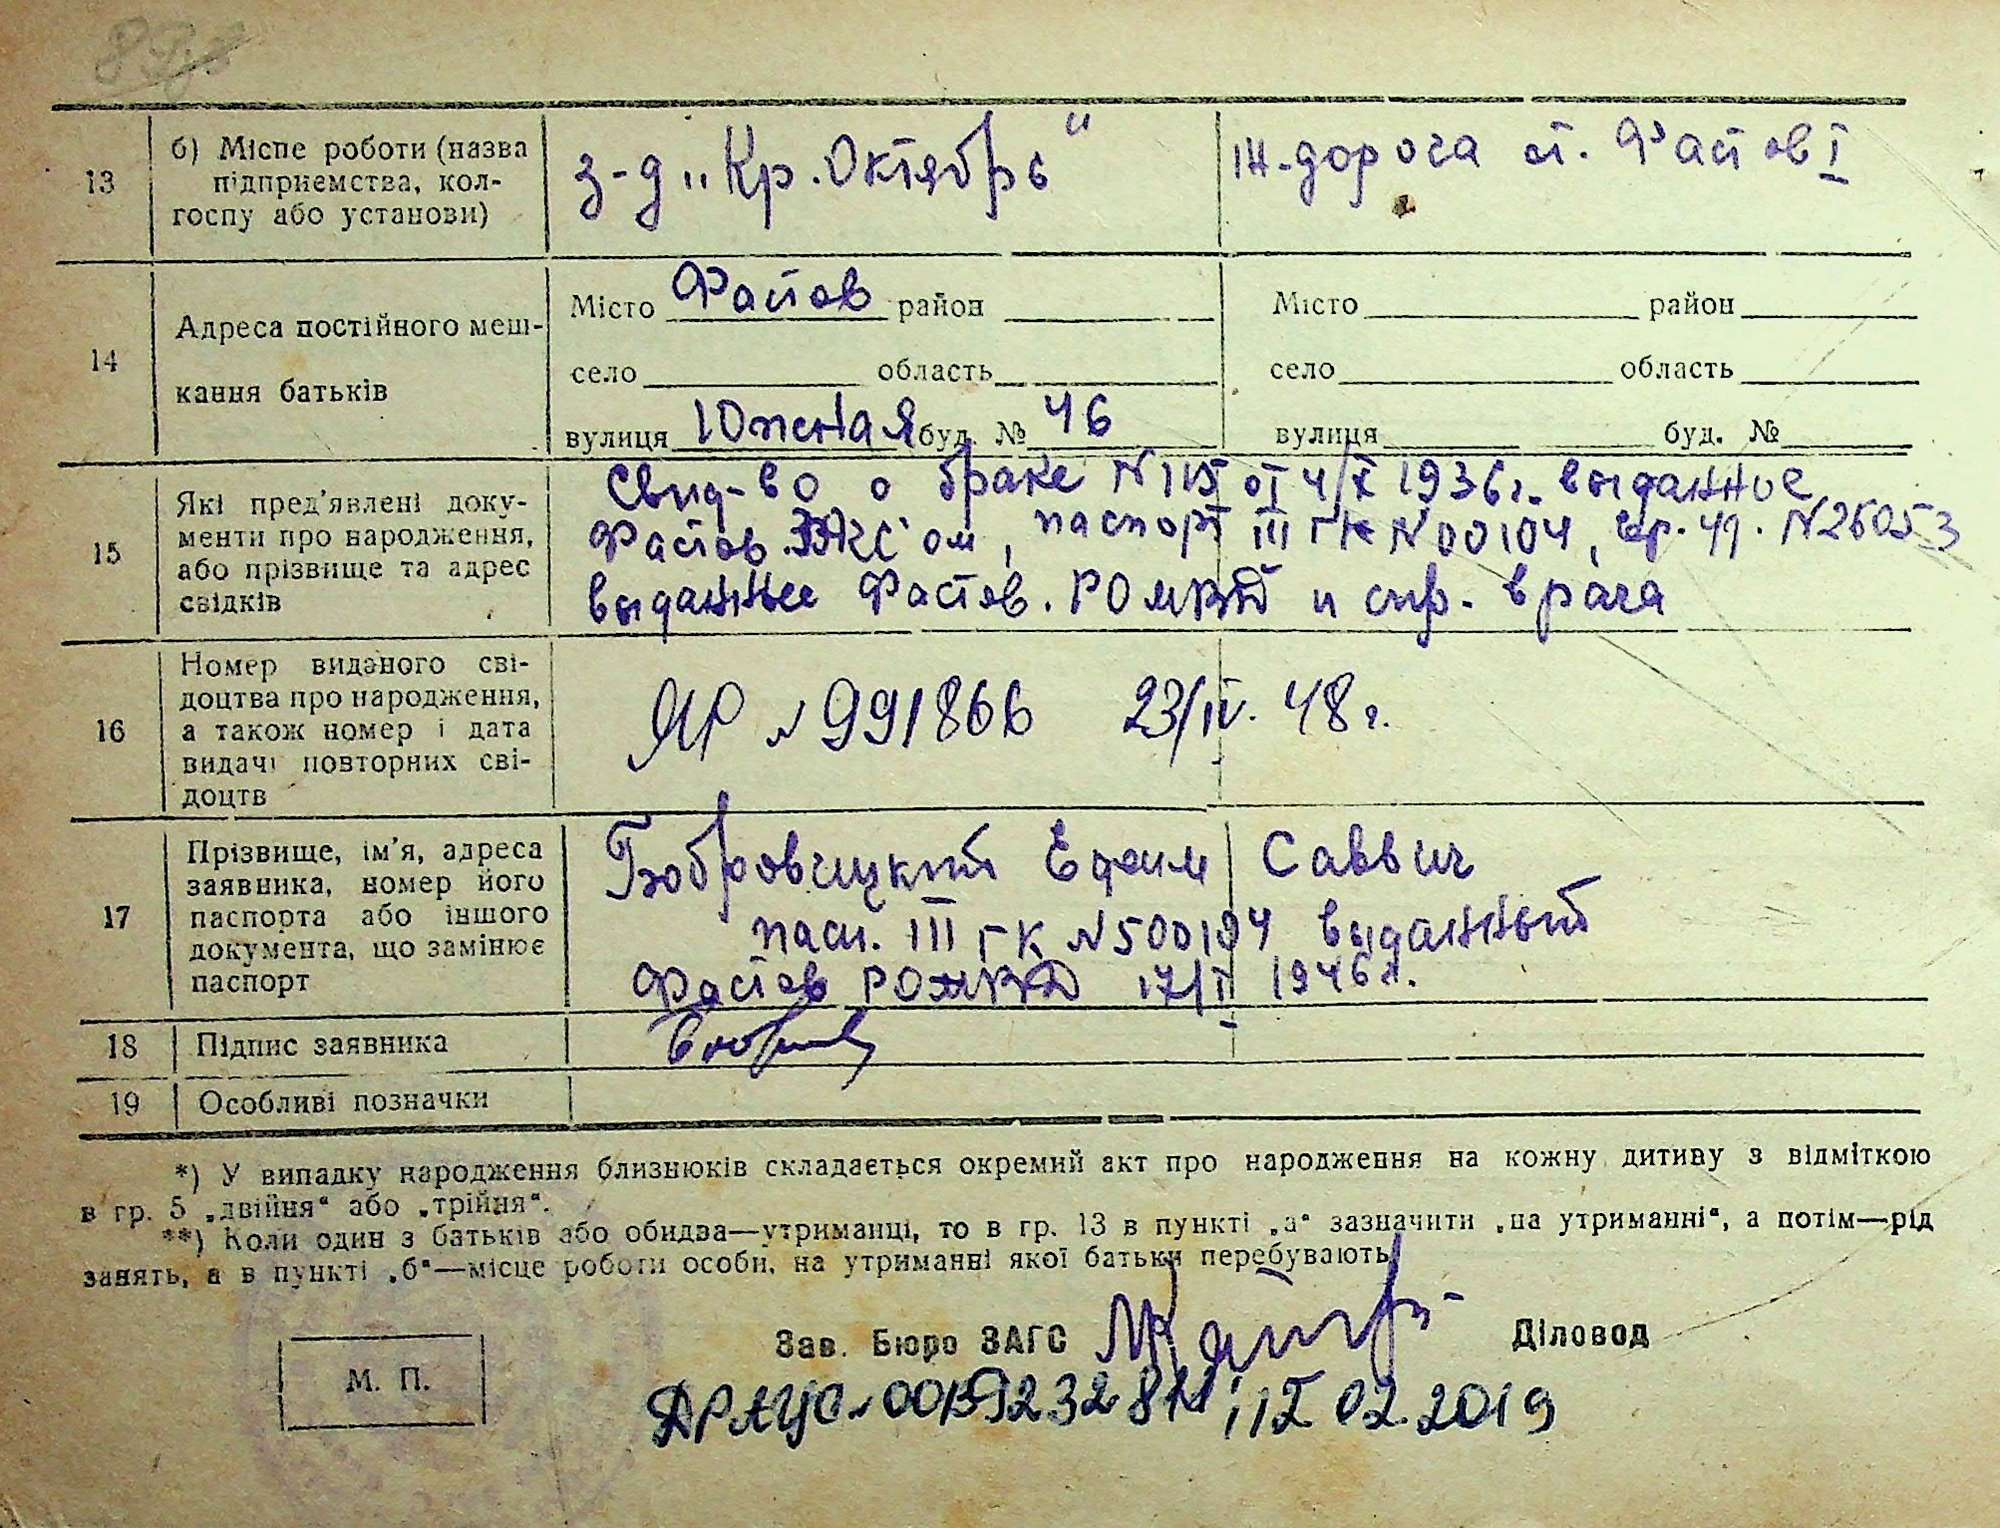 13
б) Місце роботи (назва
підприємства, кол-
госпу або установи)
з-д „Кр. Октябрь"
Ж-дорога ст. Фастов I
14
Адреса постійного меш-
кання батьків
Місто Фастов район
село область
вулиця Южная буд. № 46
Місто район
село область
вулиця буд. №
15
Які пред'явлені доку-
менти про народження,
або прізвище та адрес
свідків
Свид-во о браке N 115 от 4/X 1936г. выданное
Фастов. ЗАГС'ом, паспорт III ГК N 00104, N26053
выданные Фастов. РОМВД и спр. врача
16
Номер виданого сві-
доцтва про народження,
а також номер і дата
видачі повторних сві-
доцтв
ЯР N 991866 23/IV. 48 г.
17
Прізвище, ім'я, адреса
заявника, номер його
паспорта або іншого
документа, що замінює
паспорт
Бобровицкий Ефим Саввич
пасп. III ГК N 500194 выданный
Фастов РОМВД 17/II 1946 г.
18
Підпис заявника
19
Особливі позначки
*) У випадку народження близнюків складається окремий акт про народження на кожну дитину з відміткою
в гр. 5 „двійня“ або „трійня“.
**) Коли один з батьків або обидва—утриманці, то в гр. 13 в пункті „а“ зазначити „на утриманні“, а потім—рід
занять, а в пункті „б“—місце роботи особи, на утриманні якої батьки перебувають
Зав. Бюро ЗАГС
Діловод
М. П.
ДРАЦС 02.2019